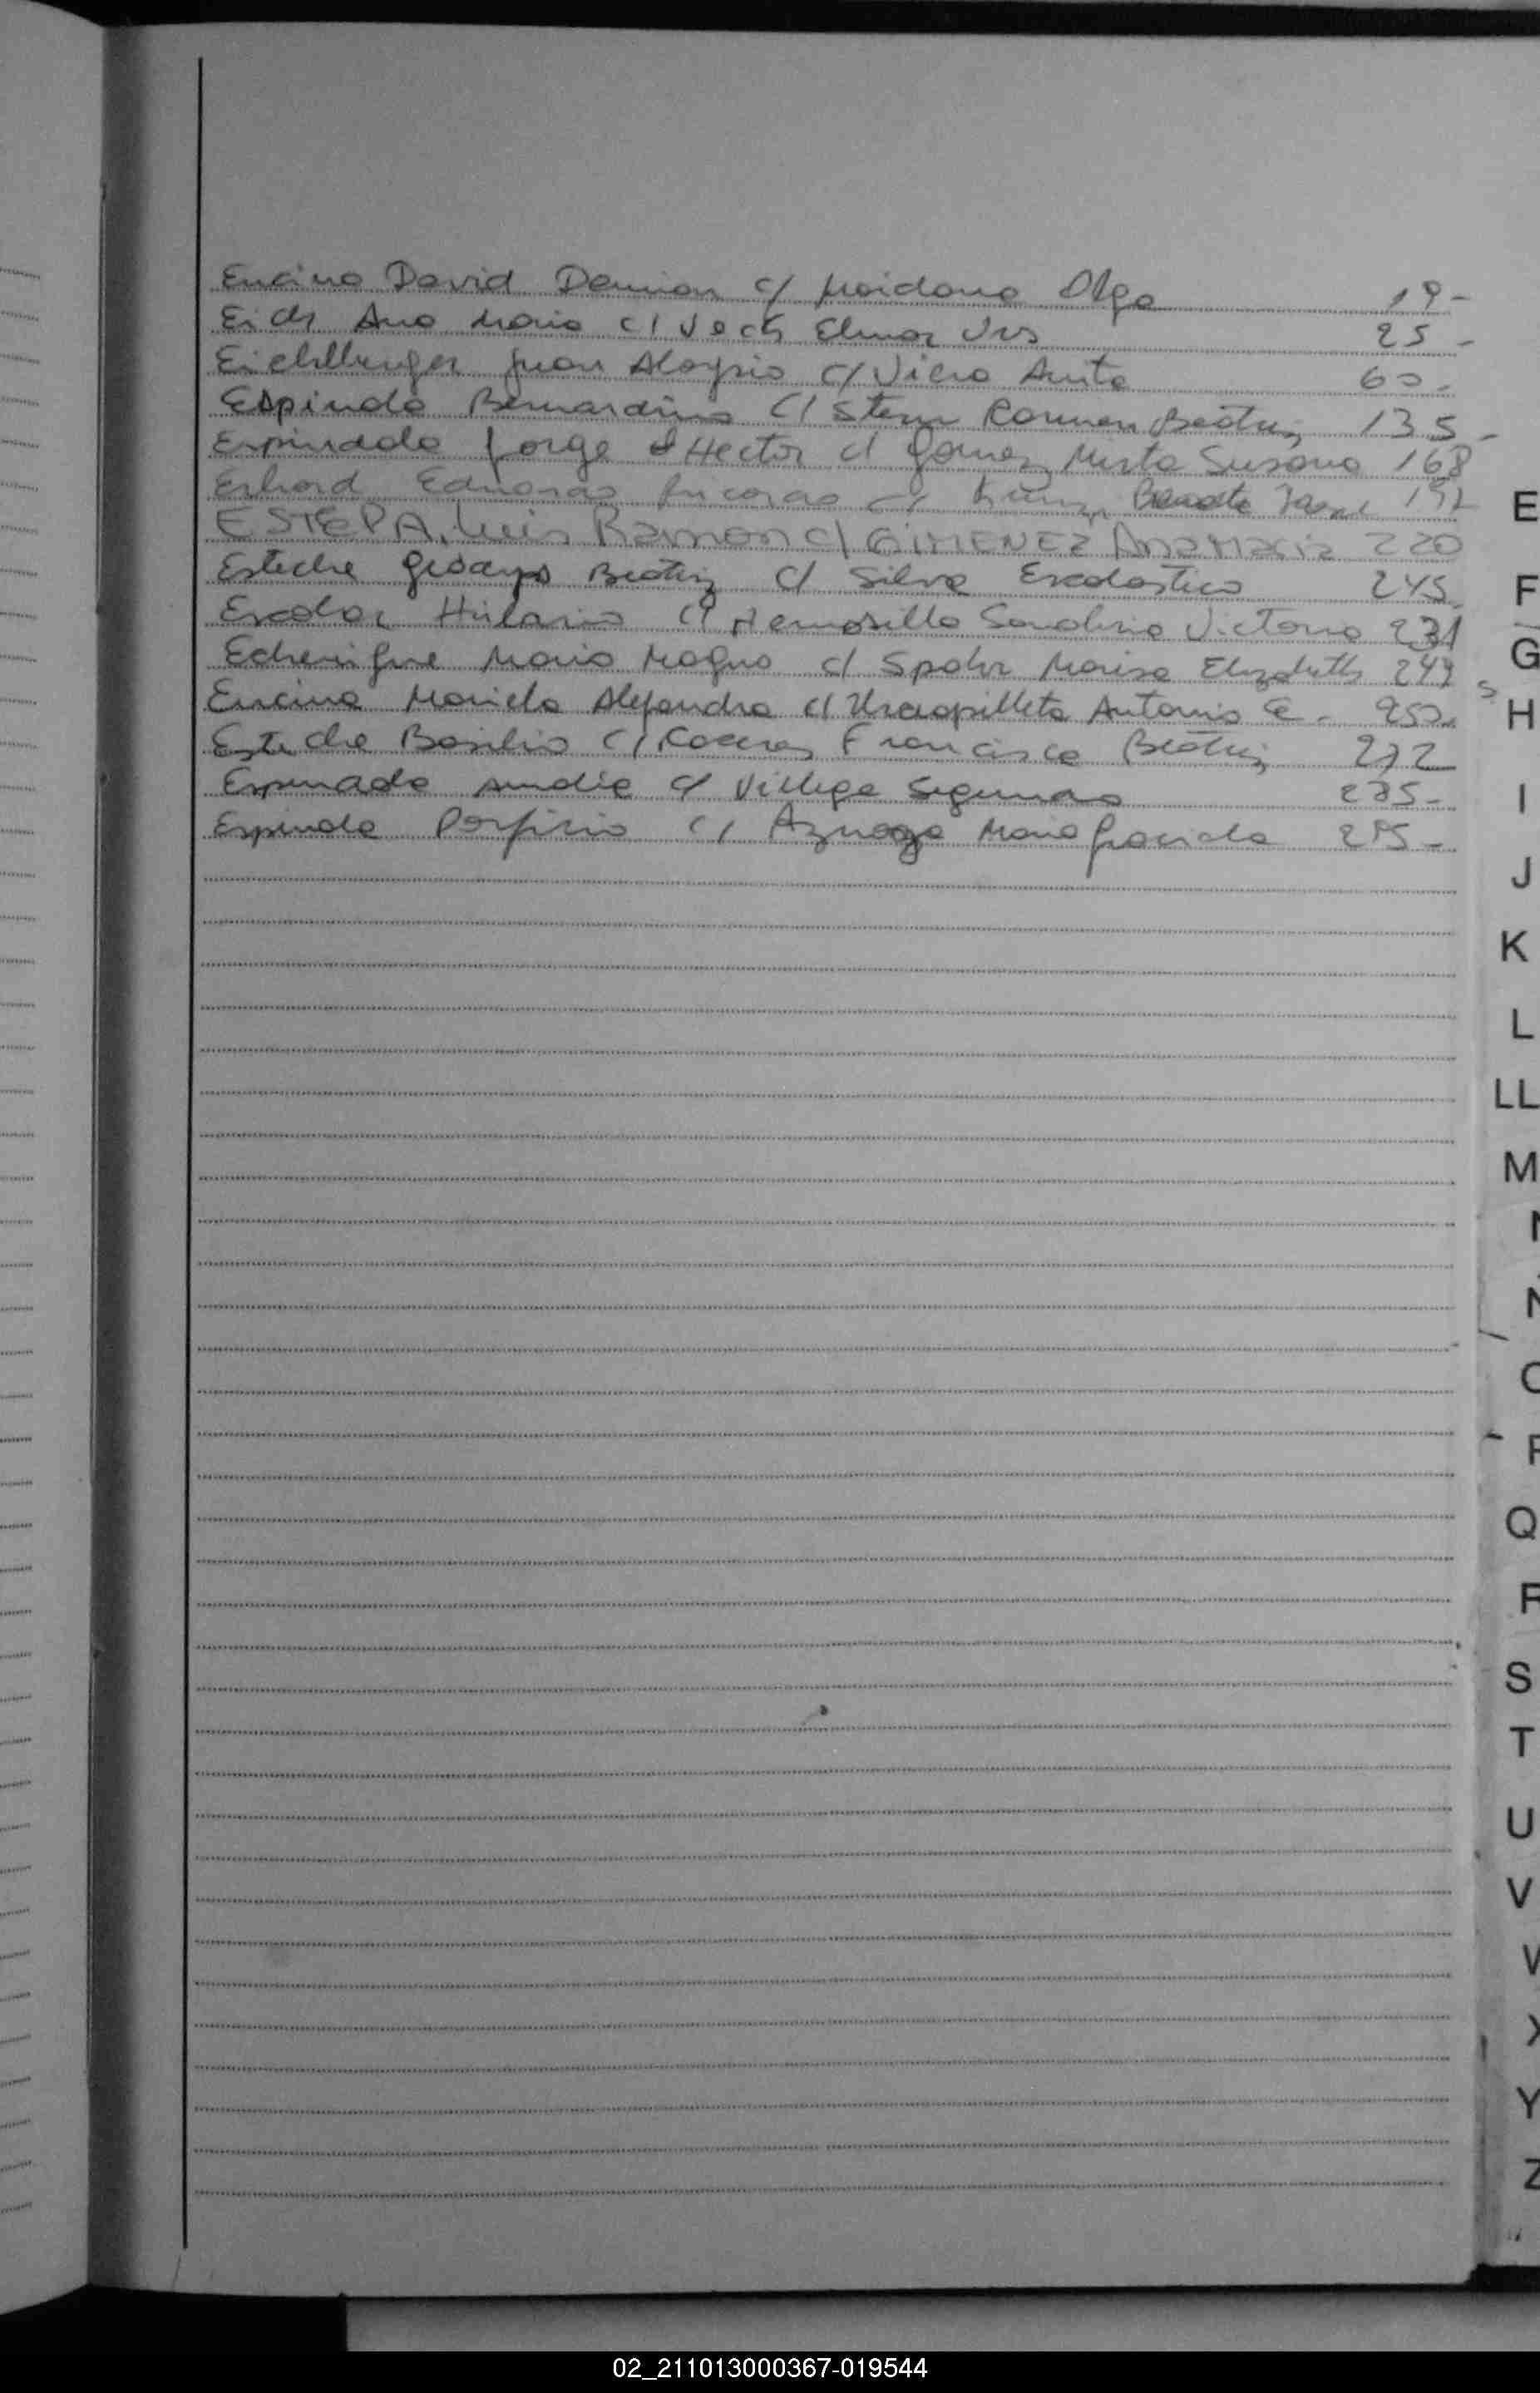 Encina David Damian c/ Maidana Olga 19-
Eich Ana Maria c/ Vech Elmar Urs 25-
Eichelberger Juan Aloysio c/ Viera Anita 60-
Espindola Bernardino c/ Stern Carmen Beatriz 135-
Espindola Jorge Hector c/ Gomez Mirta Susana 168
Erhard Eduardo Ricardo c/
ESTEPA, Luis Ramon c/ GIMENEZ Ana Maria 220
Esteche Beatriz c/ Silva Escolastico 245
Escobar Hilario c/ Hermosilla Sandina Victoria 231
Echenique Mario Magno c/ Spohr Marisa Elizabeth 249
Encina Mariela Alejandra c/ Antonio E. 250
Esteche Basilio c/ Caceres Francisca Beatriz 272
c/ Villega Segundo
Espindola Porfirio c/ Aznaga Maria
E
F
G
H
I
J
K
L
LL
M
N
Ñ
O
P
Q
R
S
T
U
V
W
X
Y
Z
02_211013000367-019544